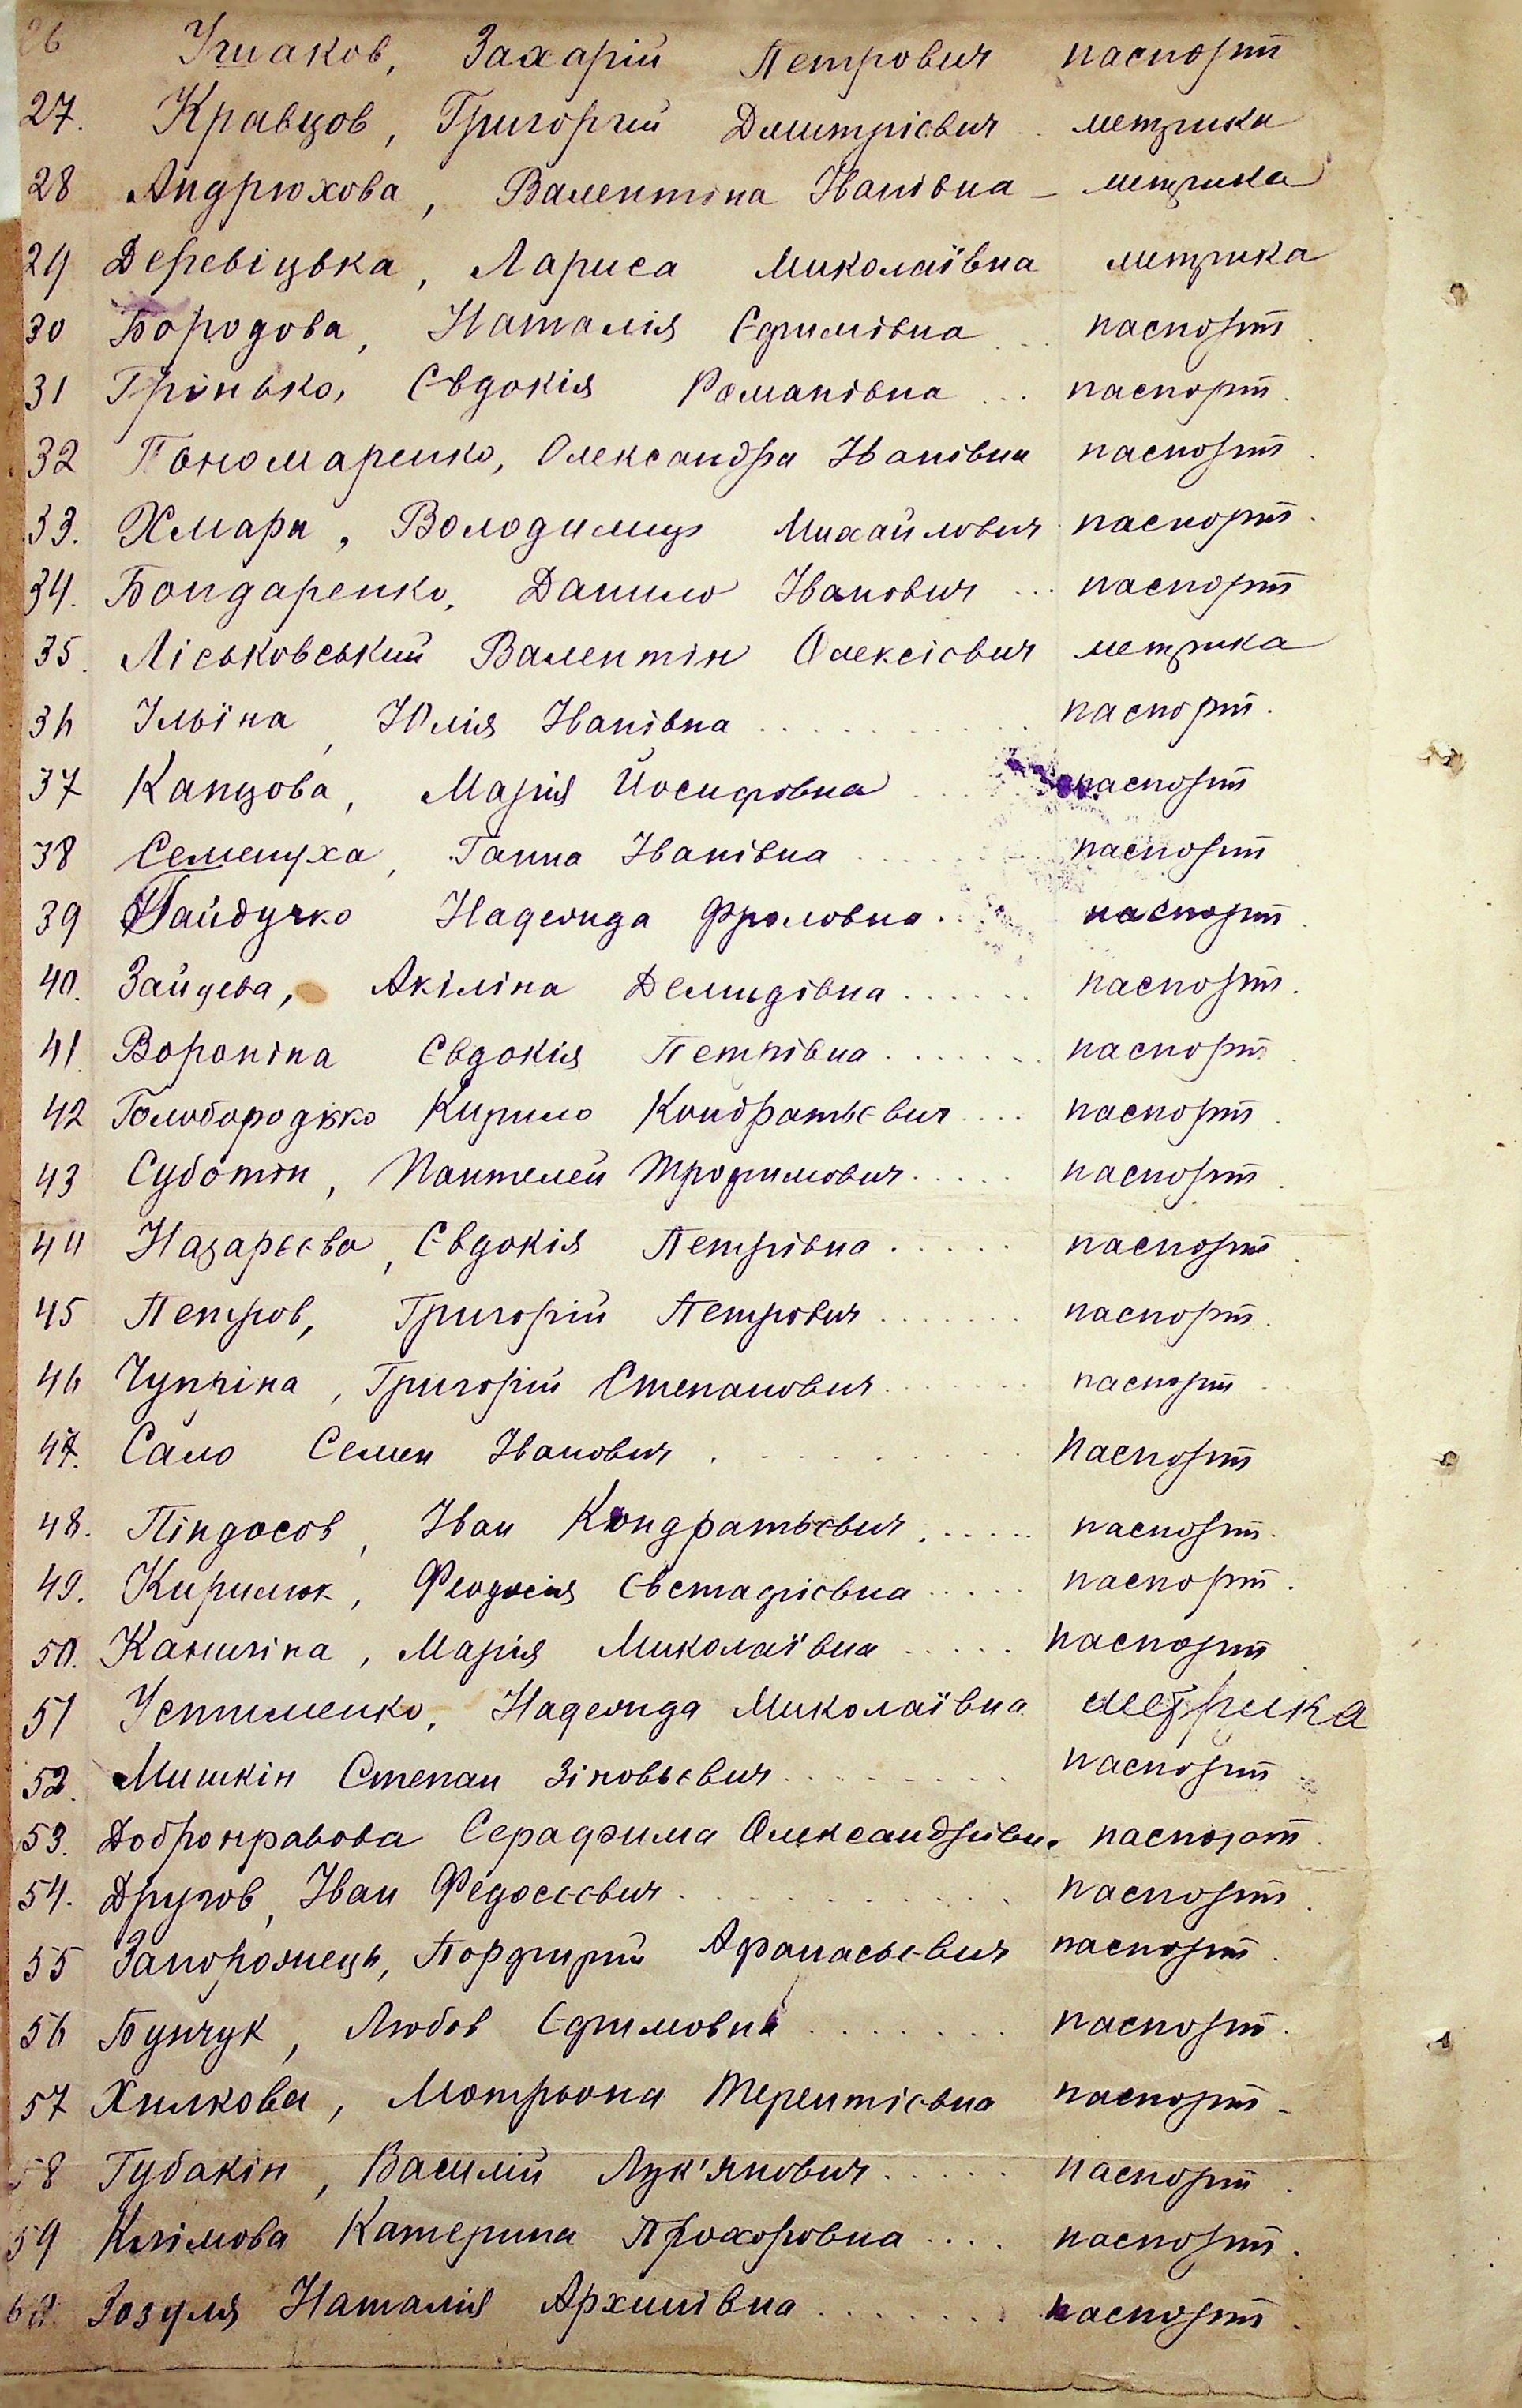 26 Ушаков, Захарій Петрович паспорт
27. Кравцов, Григорій Дмитрієвич .. метрика
28 Андрюхова, Валентіна Іванівна – метрика
29 Деревіцька, Лариса Миколаївна метрика
30 Бородова, Наталія Єфимівна ... паспорт.
31 Грінько, Євдокія Романівна ... паспорт.
32 Пономаренко, Олександра Іванівна паспорт.
33. Хмара, Володимир Михайлович паспорт.
34. Бондаренко, Данило Іванович ... паспорт
35. Ліськовський Валентін Олексієвич метрика
36 Ільїна, Юлія Іванівна .......... паспорт.
37 Канцова, Марія Йосифовна ... паспорт
38 Семенуха, Ганна Іванівна ...... паспорт.
39 Гайдучко Надежда Фроловна ... паспорт.
40. Зайцева, Акіліна Демидівна ...... паспорт.
41. Вороніна Євдокія Петрівна ....... паспорт.
42 Голобородько Кирило Кондратьєвич .... паспорт.
43 Суботін, Пантелей Трофимович ..... паспорт.
44 Назарьєва, Євдокія Петрівна ..... паспорт.
45 Петров, Григорій Петрович ....... паспорт.
46 Чупріна, Григорій Степанович ....... паспорт.
47. Сало Семен Іванович .......... Паспорт
48. Піндосов, Іван Кондратьєвич ...... паспорт.
49. Кирилюк, Феодосія Євстафієвна ..... паспорт.
50. Канигіна, Марія Миколаївна ..... паспорт.
51 Устименко, Надежда Миколаївна метрика
52. Мишкін Степан Зіновьєвич ........ паспорт.
53. Добронравова Серафима Олександрівна паспорт.
54. Другов, Іван Федосеєвич ........... паспорт.
55 Запорожець, Порфирій Афанасьєвич паспорт.
56 Бунчук, Любов Єфимовна ........ паспорт.
57 Хилкова, Мотрьона Терентієвна паспорт.
58 Губакін, Василій Лук'янович ..... паспорт.
59 Клімова Катерина Прохоровна .... паспорт.
60. Зозуля Наталія Архипівна ........ паспорт.